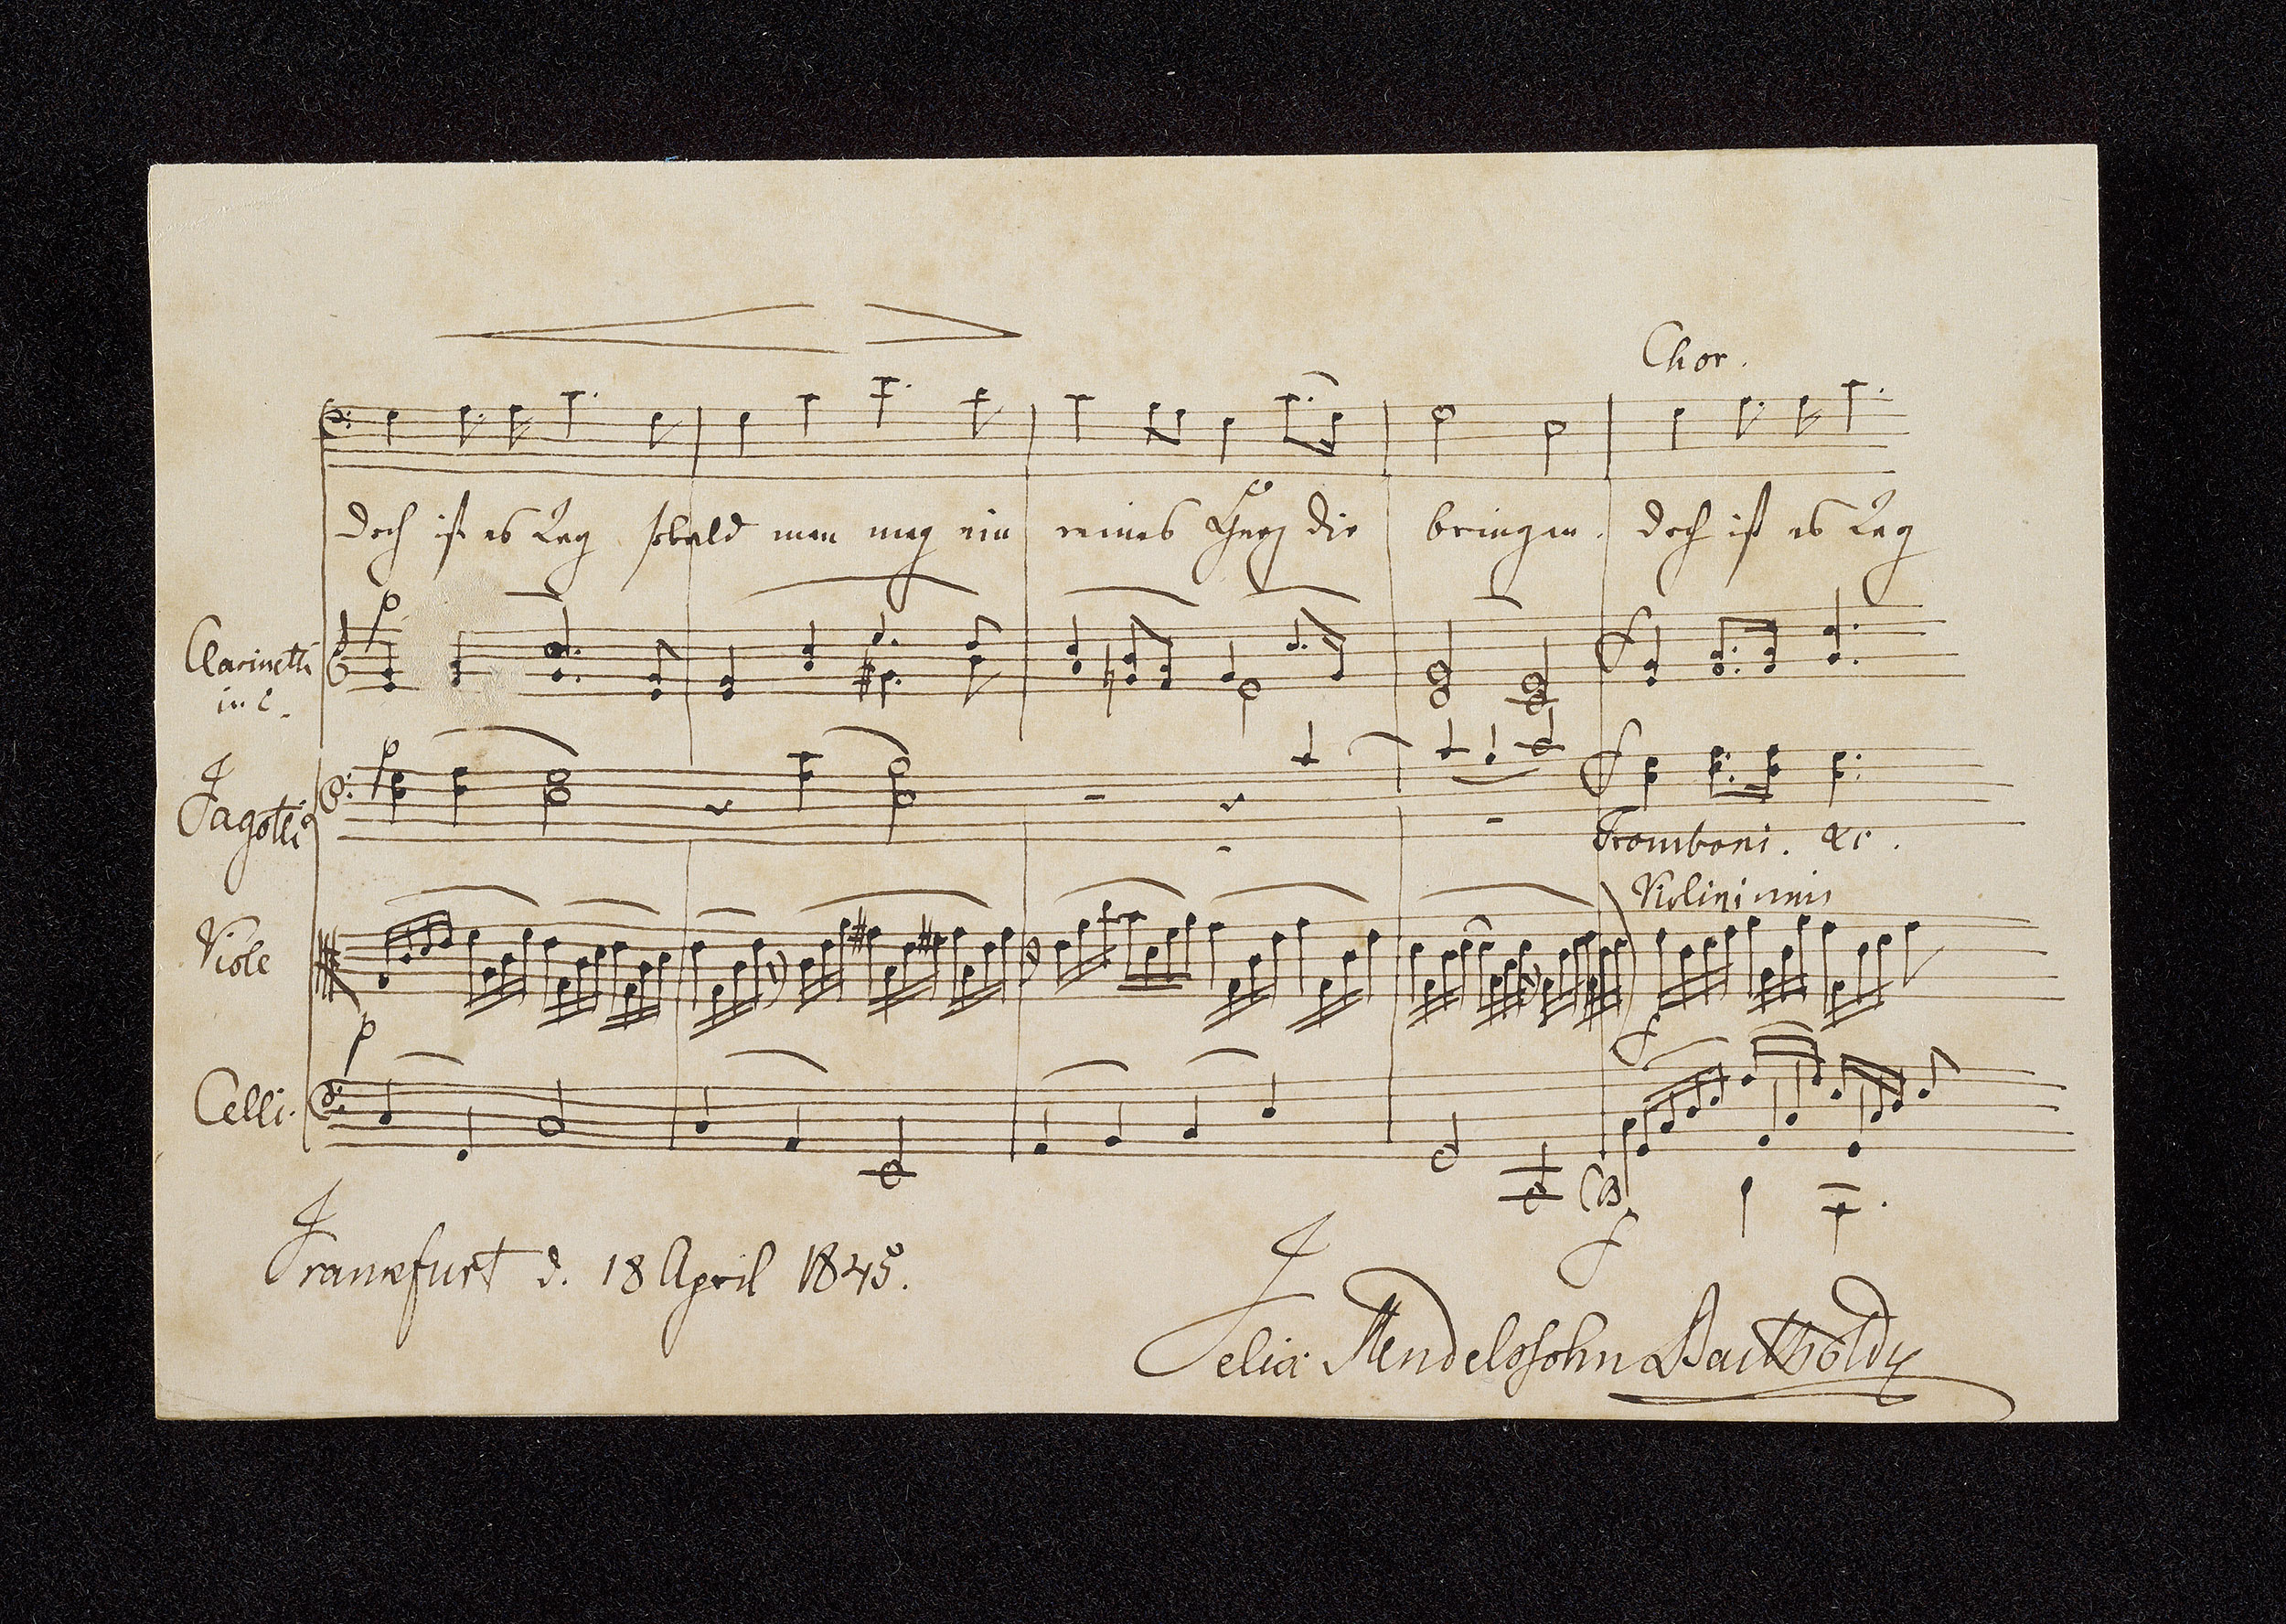 Chor.
doch ist es Tag sobald man mag ein reines Herz dir bringen. doch ist es Tag
p
Clarinetti
in C.
f
p
Fagotti
f
Tromboni. &c.
Violini unis
Viole
p
f
Celli.
CB
f
Frankfurt d. 18 April 1845.
Felix Mendelssohn Bartholdy